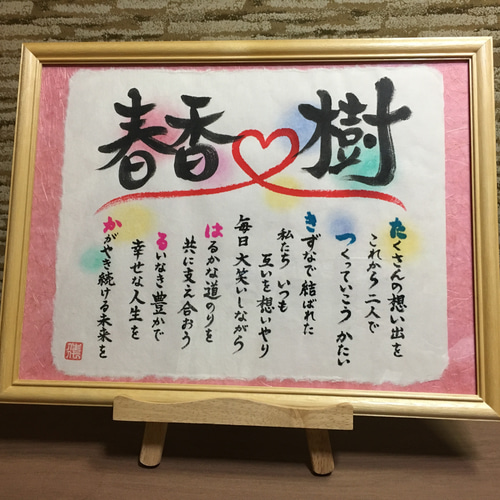 春香 樹
たくさんの想い出を
これから 二人で
つくっていこう かたい
きずなで 結ばれた
私たち いつも
互いを想いやり
毎日 大笑いしながら
はるかな道のりを
共に支え合おう
るいなき豊かで
幸せな人生を
かがやき続ける未来を